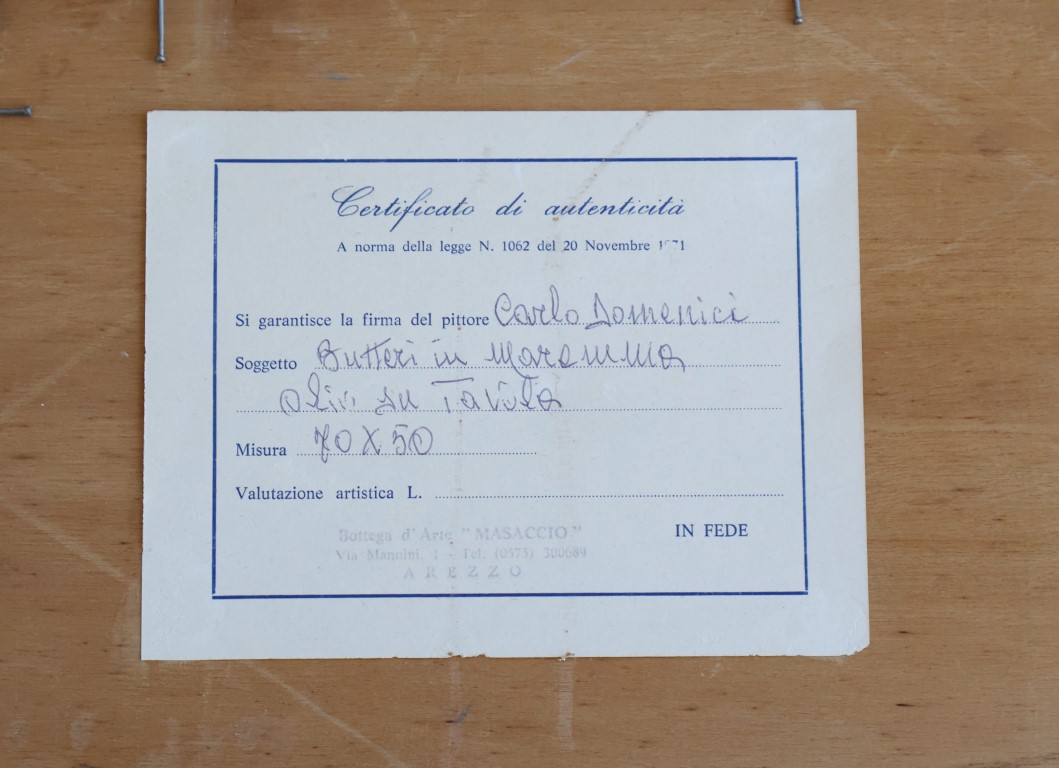 Certificato di autenticità
A norma della legge N. 1062 del 20 Novembre 1971
Si garantisce la firma del pittore Carlo Domenici
Soggetto Butteri in Maremma
olio su Tavola
Misura 70 X 50
Valutazione artistica L.
Bottega d'Arte "MASACCIO"
IN FEDE
Via Mannini, 1 - Tel. (0575) 300689
AREZZO